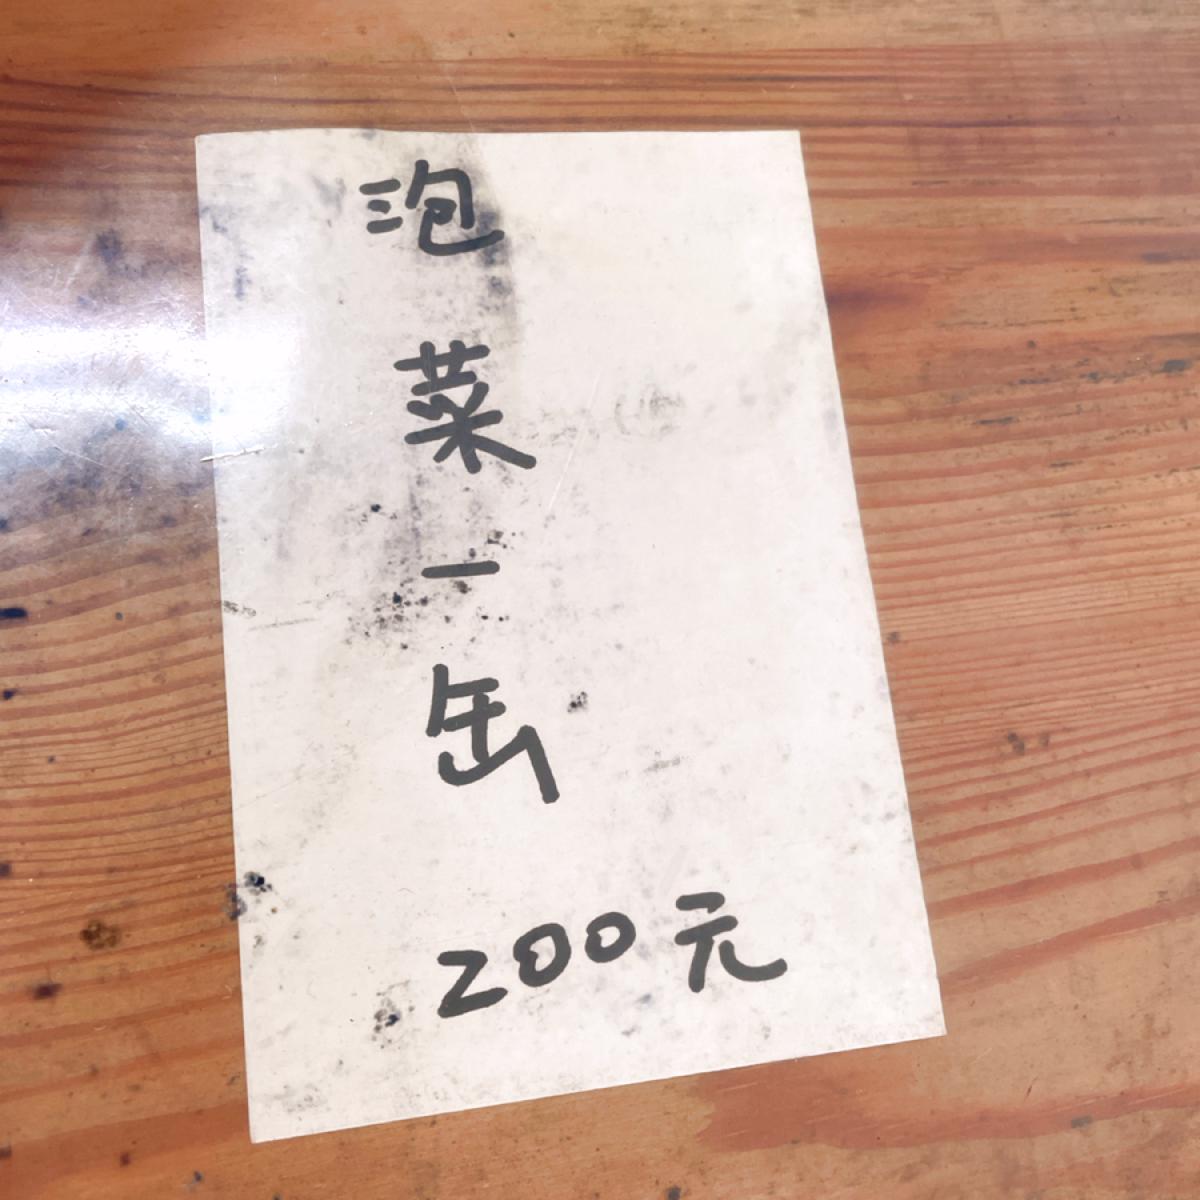 泡菜一缶
200元